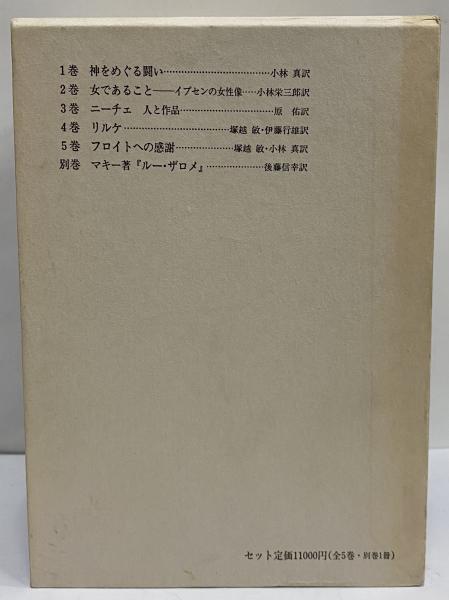 1巻 神をめぐる闘い……………………………小林 真訳
2巻 女であること――イプセンの女性像……小林栄三郎訳
3巻 ニーチェ 人と作品………………………原 佑訳
4巻 リルケ……………………………塚越 敏・伊藤行雄訳
5巻 フロイトへの感謝………………塚越 敏・小林 真訳
別巻 マキー著『ルー・ザロメ』………………後藤信幸訳
セット定価11000円(全5巻・別巻1冊)